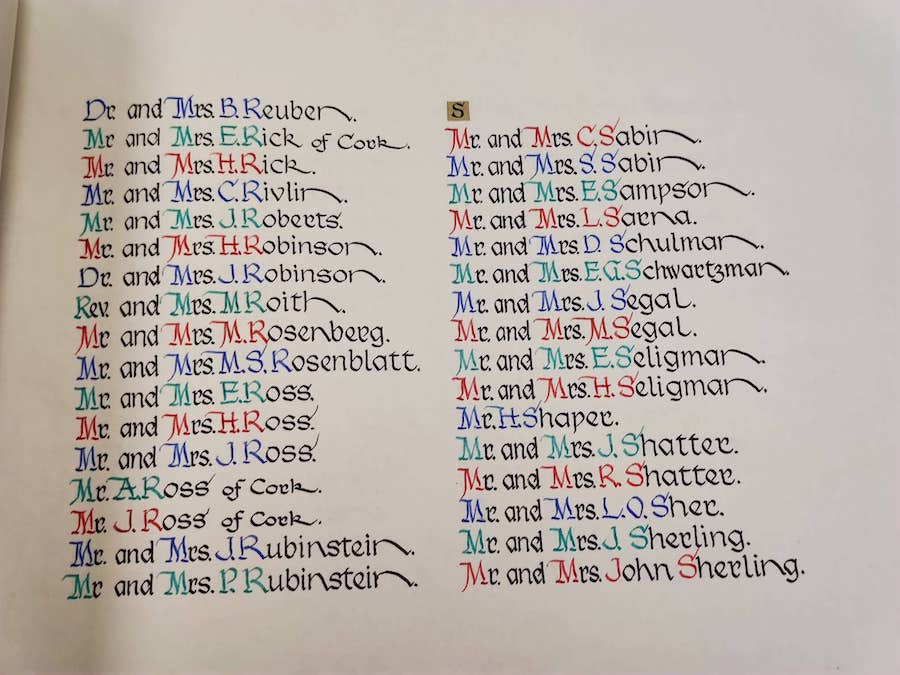 Dr. and Mrs. B. Reuben.
Mr and Mrs. E. Rick of Cork.
Mr. and Mrs. H. Rick.
Mr. and Mrs. C. Rivlin.
Mr. and Mrs. J. Roberts.
Mr. and Mrs. H. Robinson.
Dr. and Mrs. J. Robinson.
Rev. and Mrs. M Roith.
Mr and Mrs. M. Rosenberg.
Mr. and Mrs. M.S. Rosenblatt.
Mr. and Mrs. E. Ross.
Mr. and Mrs. H. Ross.
Mr. and Mrs. J. Ross.
Mr. A. Ross of Cork.
Mr. J. Ross of Cork.
Mr. and Mrs. J. Rubinstein.
Mr and Mrs. P. Rubinstein.
S
Mr. and Mrs. C. Sabin.
Mr. and Mrs. S. Sabin.
Mr. and Mrs. E. Sampson.
Mr. and Mrs. L. Sarna.
Mr. and Mrs. D. Schulman.
Mr. and Mrs. E.G. Schwartzman.
Mr. and Mrs. J. Segal.
Mr. and Mrs. M. Segal.
Mr. and Mrs. E. Seligman.
Mr. and Mrs. H. Seligman.
Mr. H. Shaper.
Mr. and Mrs. J. Shatter.
Mr. and Mrs. R. Shatter.
Mr. and Mrs. L.O. Sher.
Mr. and Mrs. J. Sherling.
Mr. and Mrs. John Sherling.